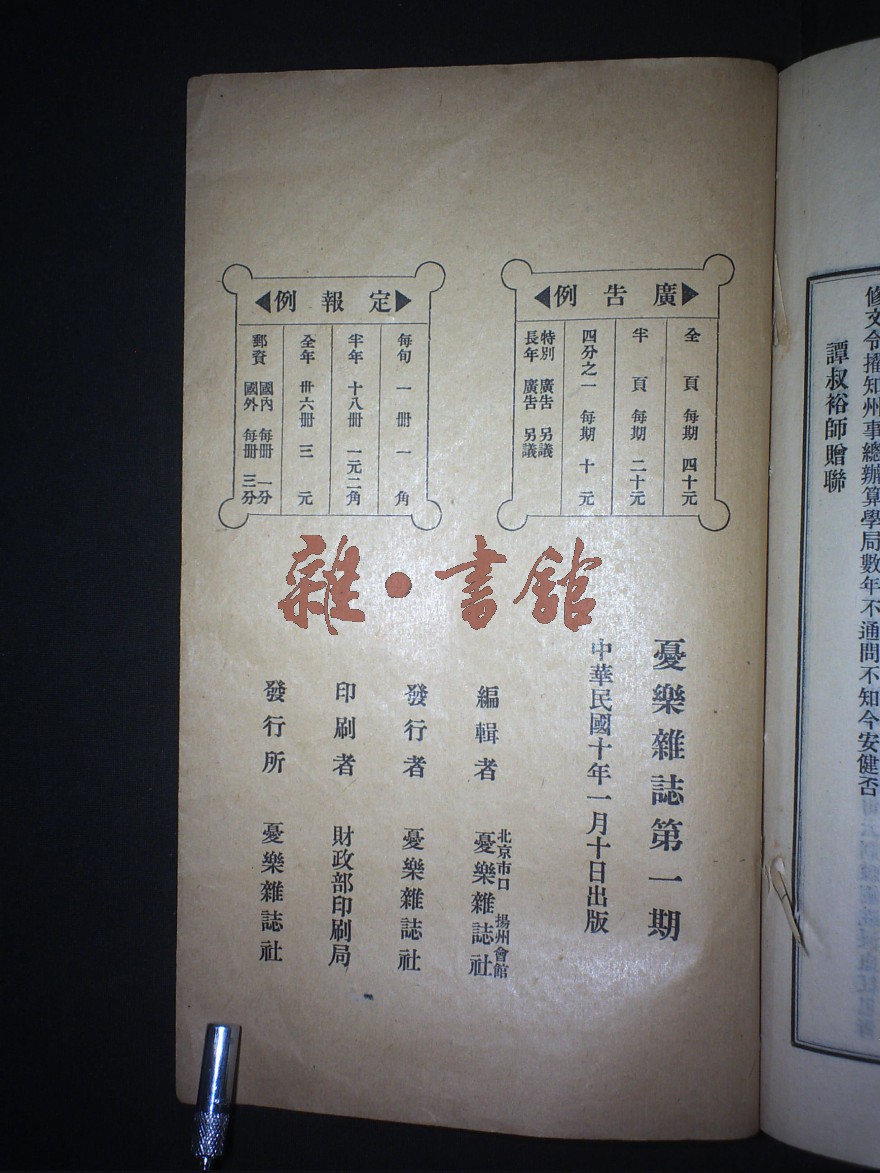 修文令擢知州事總辦算學局數年不通問不知今安健否
譚叔裕師贈聯
廣告例
全頁 每期 四十元
半頁 每期 二十元
四分之一 每期 十元
特別廣告 另議
長年廣告 另議
定報例
每旬 一冊 一角
半年 十八冊 一元二角
全年 卅六冊 三元
郵資 國內 每冊 一分
國外 每冊 三分
雜·書館
憂樂雜誌第一期
中華民國十年一月十日出版
編輯者 北京市口 揚州會館 憂樂雜誌社
發行者 憂樂雜誌社
印刷者 財政部印刷局
發行所 憂樂雜誌社